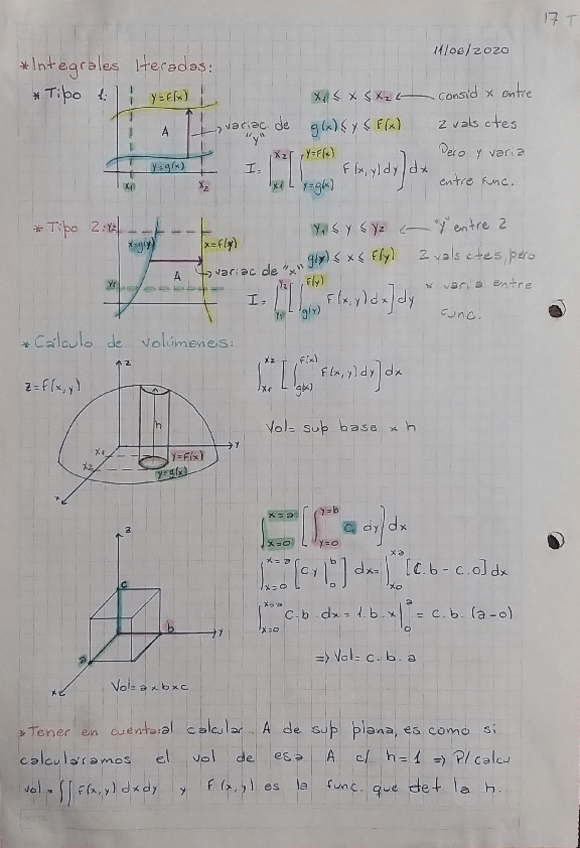 17 T
11/06/2020
* Integrales Iteradas:
* Tipo 1:
y=F(x)
A
variac. de "y"
y=g(x)
x₁
x₂
x₁ ≤ x ≤ x₂ ← consid x entre
g(x) ≤ y ≤ F(x) 2 vals ctes
Pero y varia
entre func.
I = ∫_{x₁}^{x₂} [ ∫_{y=g(x)}^{y=F(x)} F(x,y) dy ] dx
* Tipo 2:
y₂
x=g(y)
x=F(y)
A
variac de "x"
y₁
y₁ ≤ y ≤ y₂ ← "y" entre 2
g(y) ≤ x ≤ F(y) 2 vals ctes, pero
x varia entre
func.
I = ∫_{y₁}^{y₂} [ ∫_{g(y)}^{F(y)} F(x,y) dx ] dy
* Cálculo de volúmeneis:
z
z=F(x,y)
h
y
x₁
x₂
y=F(x)
y=g(x)
x
∫_{x₁}^{x₂} [ ∫_{g(x)}^{F(x)} F(x,y) dy ] dx
Vol = sup base × h
z
c
b
y
a
x
Vol = a×b×c
∫_{x=0}^{x=a} [ ∫_{y=0}^{y=b} c dy ] dx
∫_{x=0}^{x=a} [ c y |_0^b ] dx = ∫_{x0}^{xa} [c.b - c.0] dx
∫_{x=0}^{x=a} c.b. dx = c.b.x |_0^a = c.b.(a-0)
⇒ Vol = c.b.a
* Tener en cuenta: al calcular A de sup plana, es como si
calculáramos el vol de esa A c/ h=1 ⇒ P/ calcu
vol = ∫∫ F(x,y) dxdy y F(x,y) es la func. que det la h.